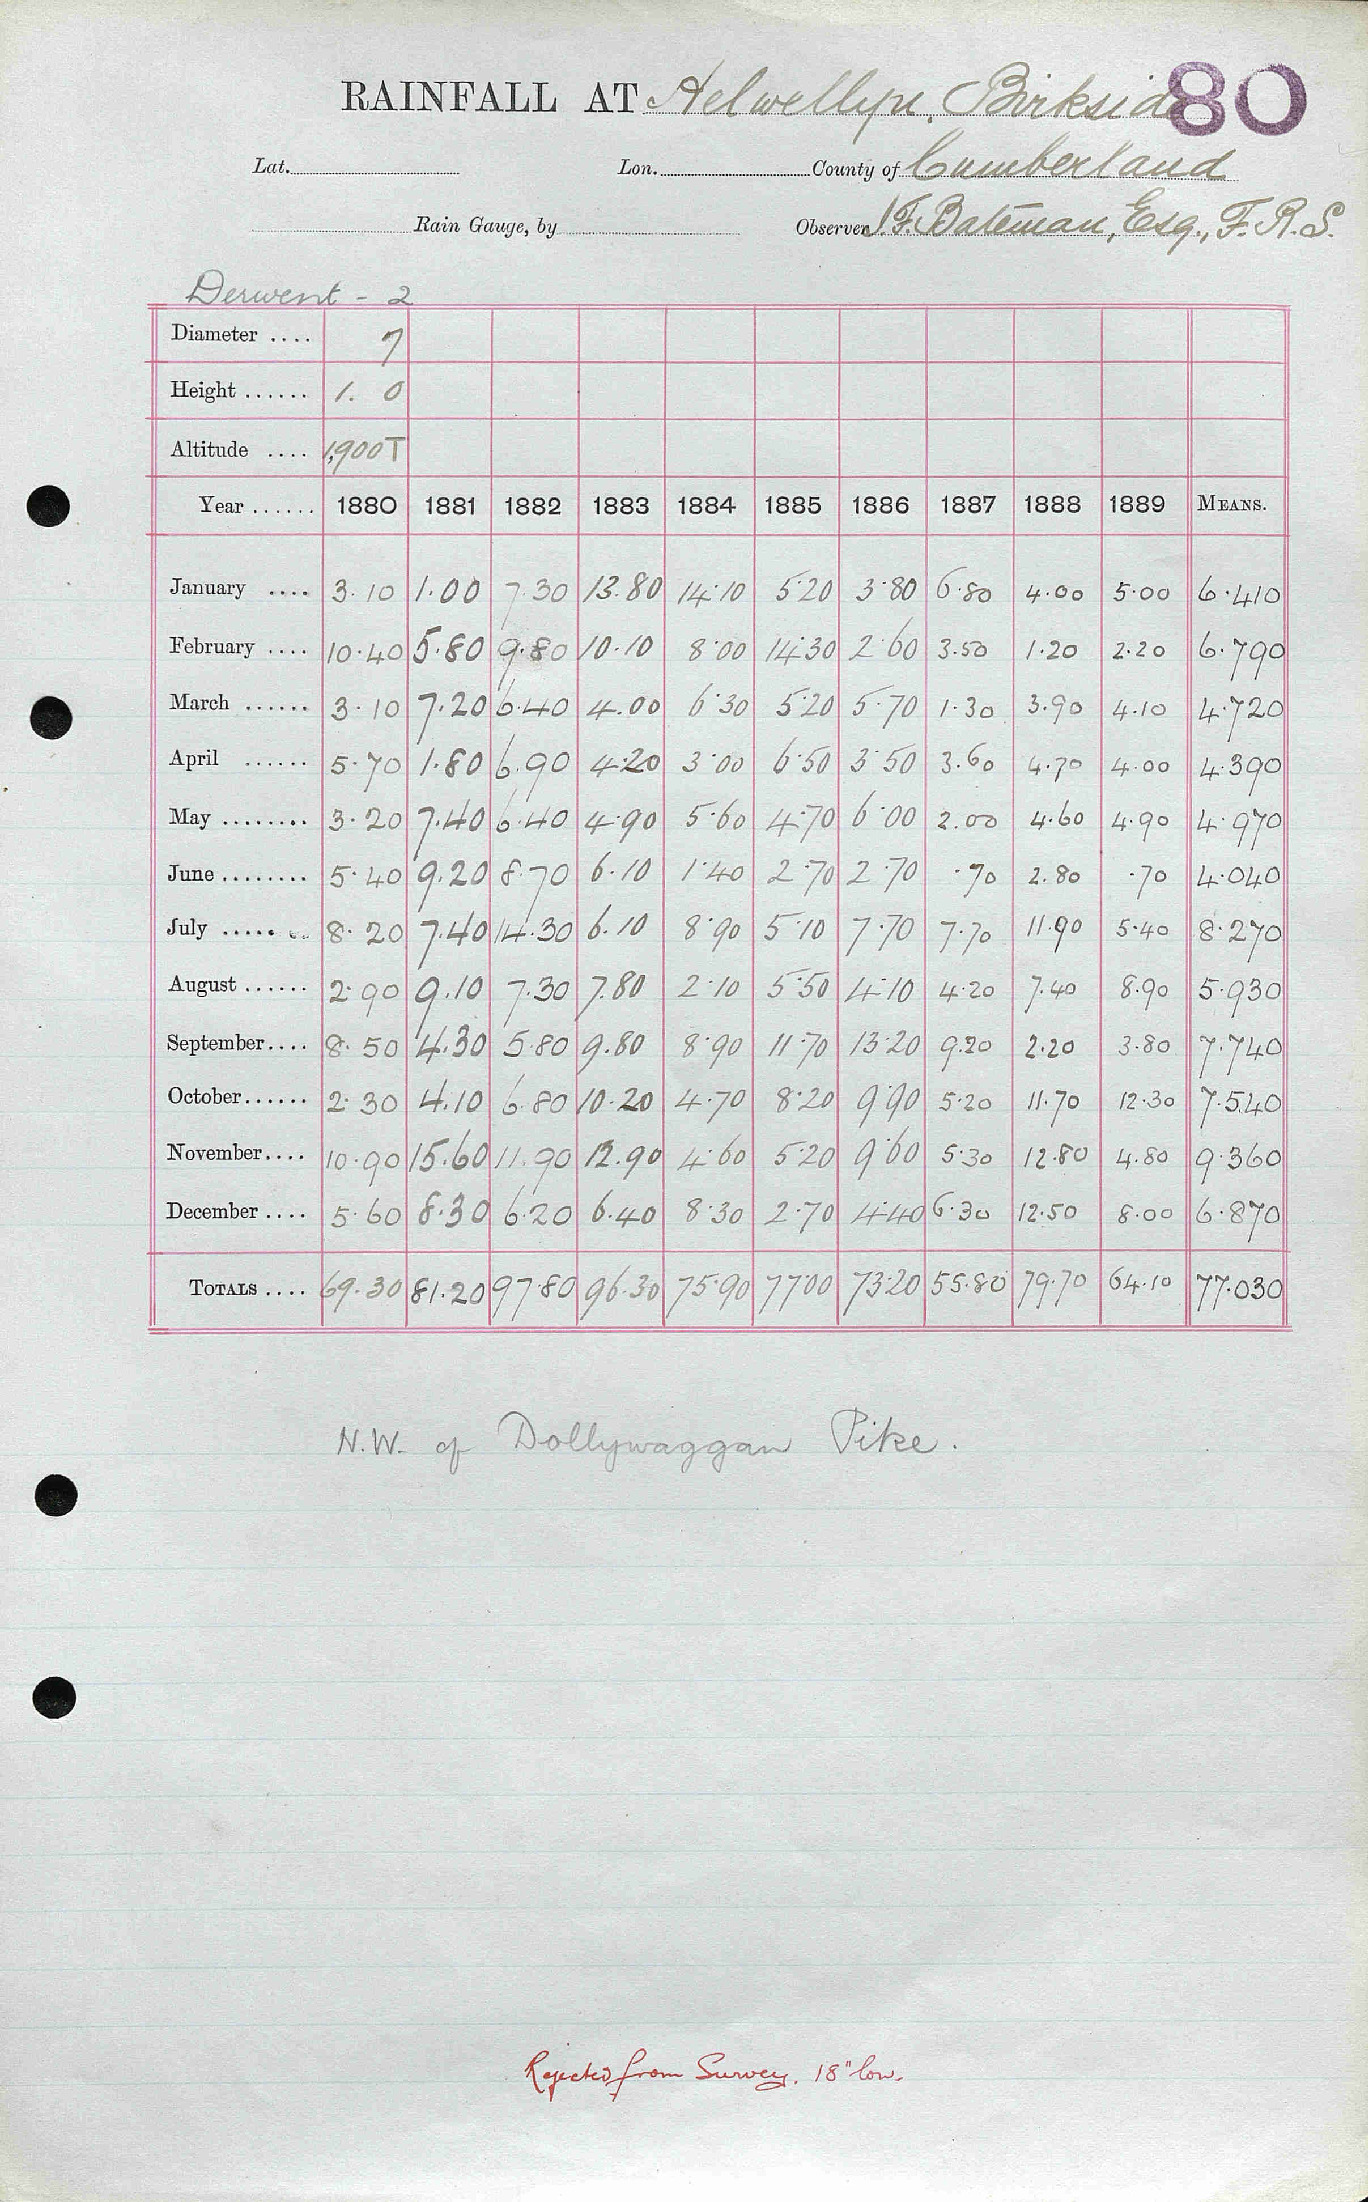 RAINFALL AT Helwellyn, Birkside 80
Lat. Lon. County of Cumberland
Rain Gauge, by Observer J. F. Bateman, Esq., F.R.S.
Derwent - 2
Diameter .... 7
Height ...... 1. 0
Altitude .... 1,900 T
Year ...... 1880 1881 1882 1883 1884 1885 1886 1887 1888 1889 MEANS.
January .... 3.10 1.00 7.30 13.80 14.10 5.20 3.80 6.80 4.00 5.00 6.410
February .... 10.40 5.80 9.80 10.10 8.00 14.30 2.60 3.50 1.20 2.20 6.790
March ...... 3.10 7.20 6.40 4.00 6.30 5.20 5.70 1.30 3.90 4.10 4.720
April ...... 5.70 1.80 6.90 4.20 3.00 6.50 3.50 3.60 4.70 4.00 4.390
May ........ 3.20 7.40 6.40 4.90 5.60 4.70 6.00 2.00 4.60 4.90 4.970
June ........ 5.40 9.20 8.70 6.10 1.40 2.70 2.70 .70 2.80 .70 4.040
July ....... 8.20 7.40 14.30 6.10 8.90 5.10 7.70 7.70 11.90 5.40 8.270
August ...... 2.90 9.10 7.30 7.80 2.10 5.50 4.10 4.20 7.40 8.90 5.930
September .... 8.50 4.30 5.80 9.80 8.90 11.70 13.20 9.20 2.20 3.80 7.740
October ...... 2.30 4.10 6.80 10.20 4.70 8.20 9.90 5.20 11.70 12.30 7.540
November .... 10.90 15.60 11.90 12.90 4.60 5.20 9.60 5.30 12.80 4.80 9.360
December .... 5.60 8.30 6.20 6.40 8.30 2.70 4.40 6.30 12.50 8.00 6.870
TOTALS .... 69.30 81.20 97.80 96.30 75.90 77.00 73.20 55.80 79.70 64.10 77.030
N.W. of Dollywaggan Pike.
Rejected from Survey. 18" low.